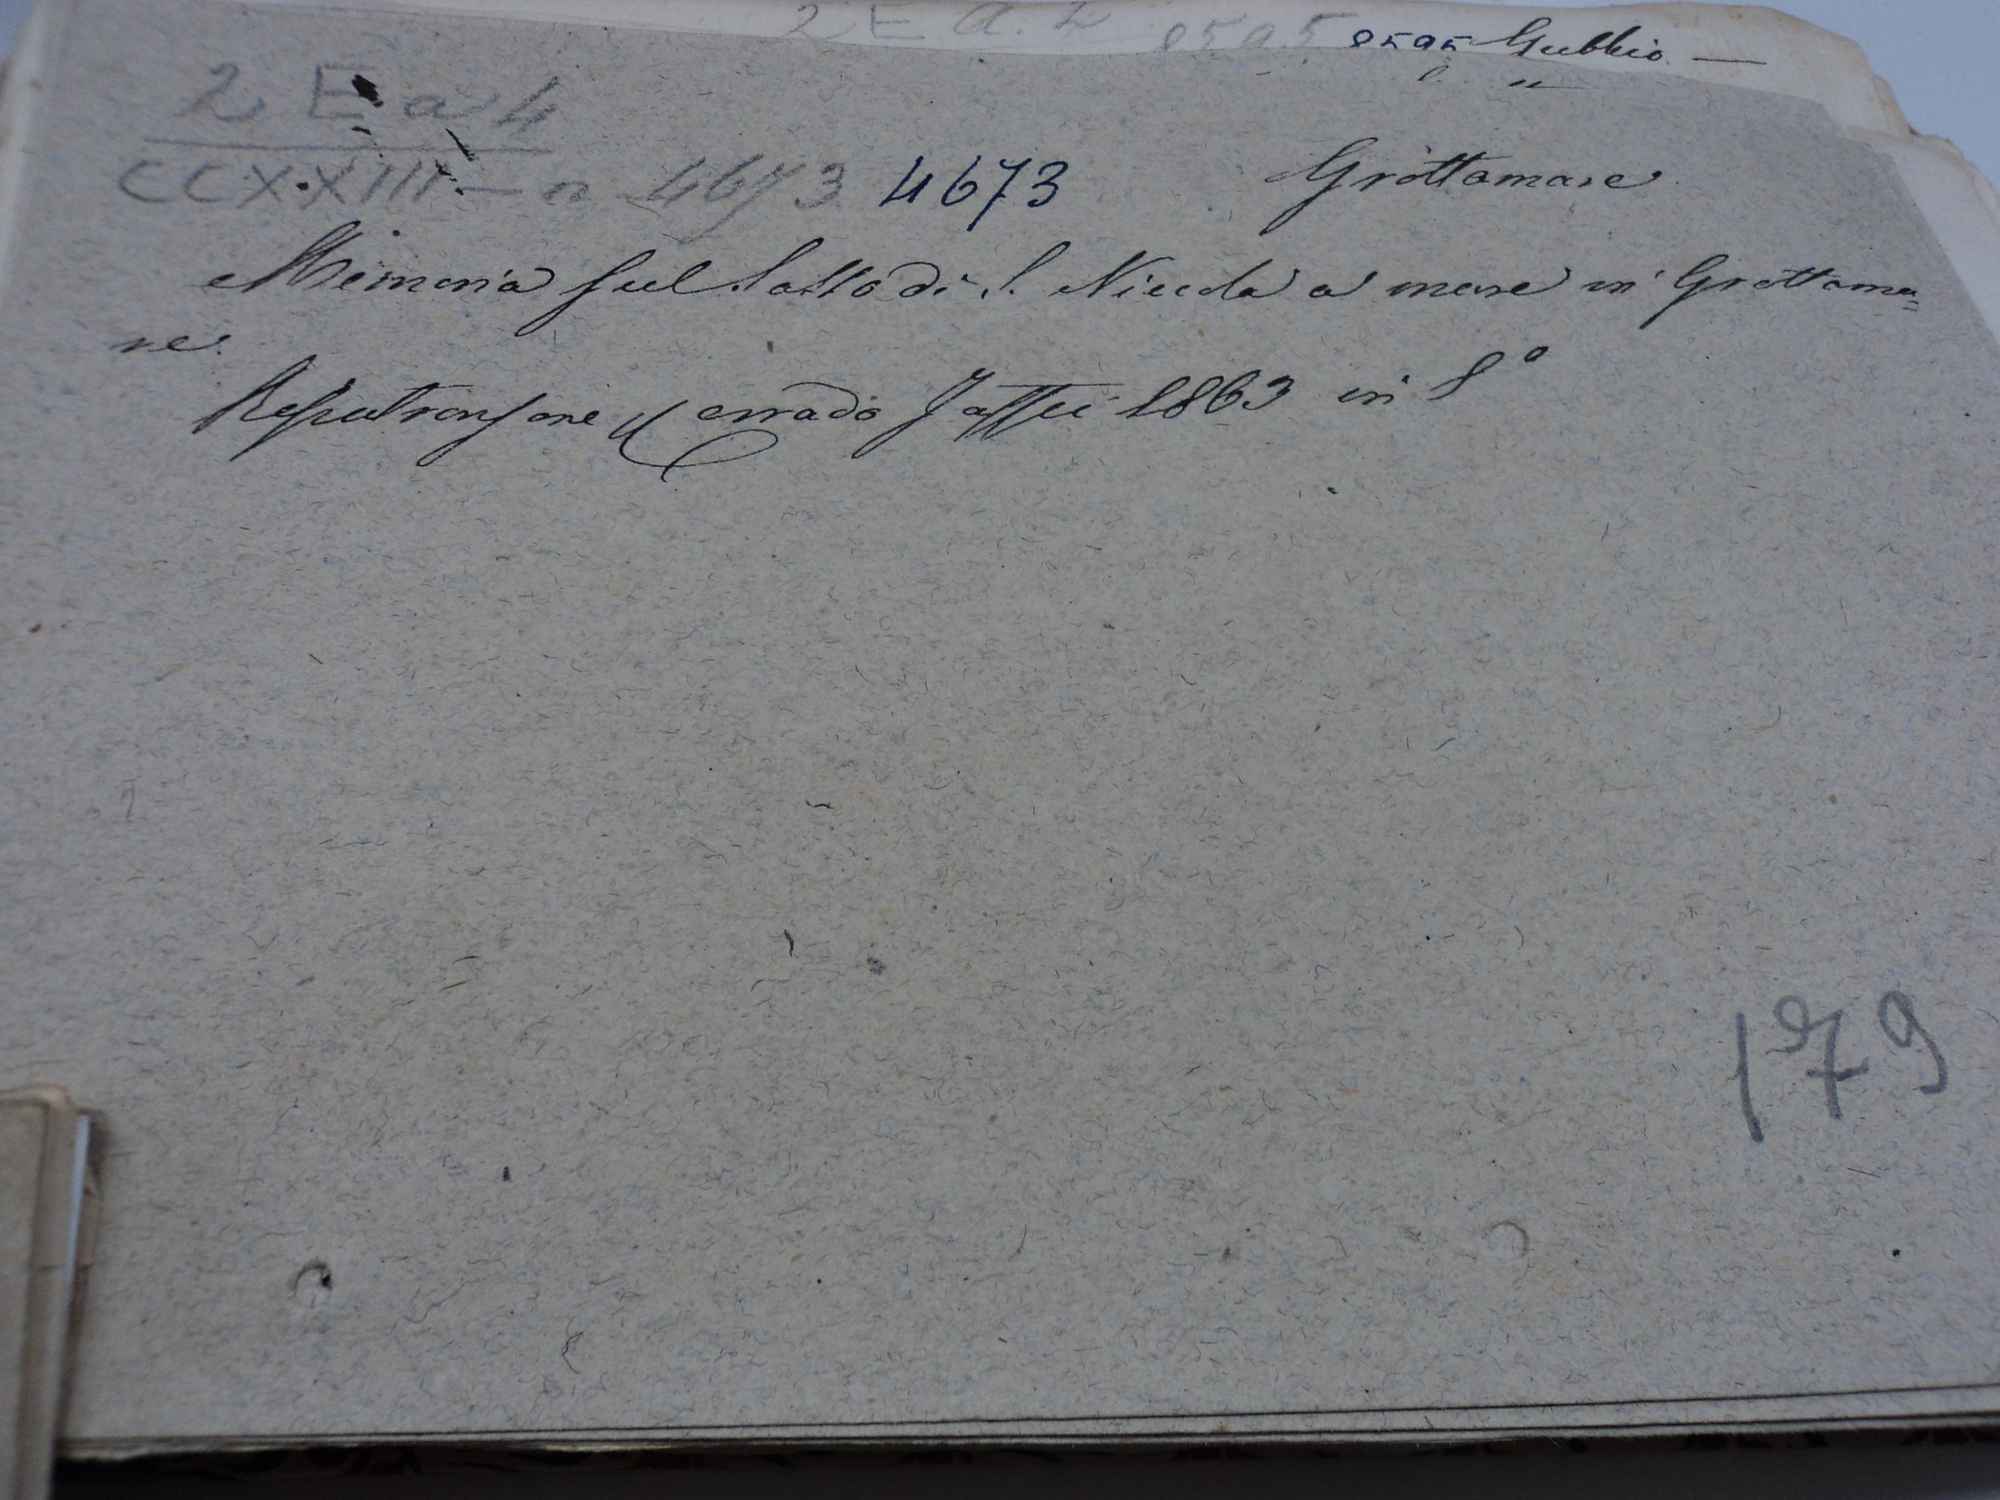 2 E a. 4 8595 8595 Gubbio —
2 E a 4
CCXXIII – n 4673 4673 Grottamare
Memoria sul Sasso di S. Nicola a mare in Grottama=
re.
Ripatransone Corrado Jaffei 1863 in 8º
179